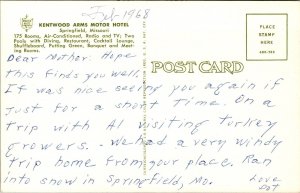 Feb-1968
KENTWOOD ARMS MOTOR HOTEL
Springfield, Missouri
175 Rooms, Air-Conditioned, Radio and TV; Two
Pools with Diving, Restaurant, Cocktail Lounge,
Shuffleboard, Putting Green, Banquet and Meet-
ing Rooms.
POST CARD
PLACE
STAMP
HERE
Dear Mother: Hope
this finds you well.
It was nice seeing you again if
just for a short time. On a
trip with Al visiting turkey
growers. - we had a very windy
trip home from your place. Ran
into snow in Springfield, Mo. Love
Dot